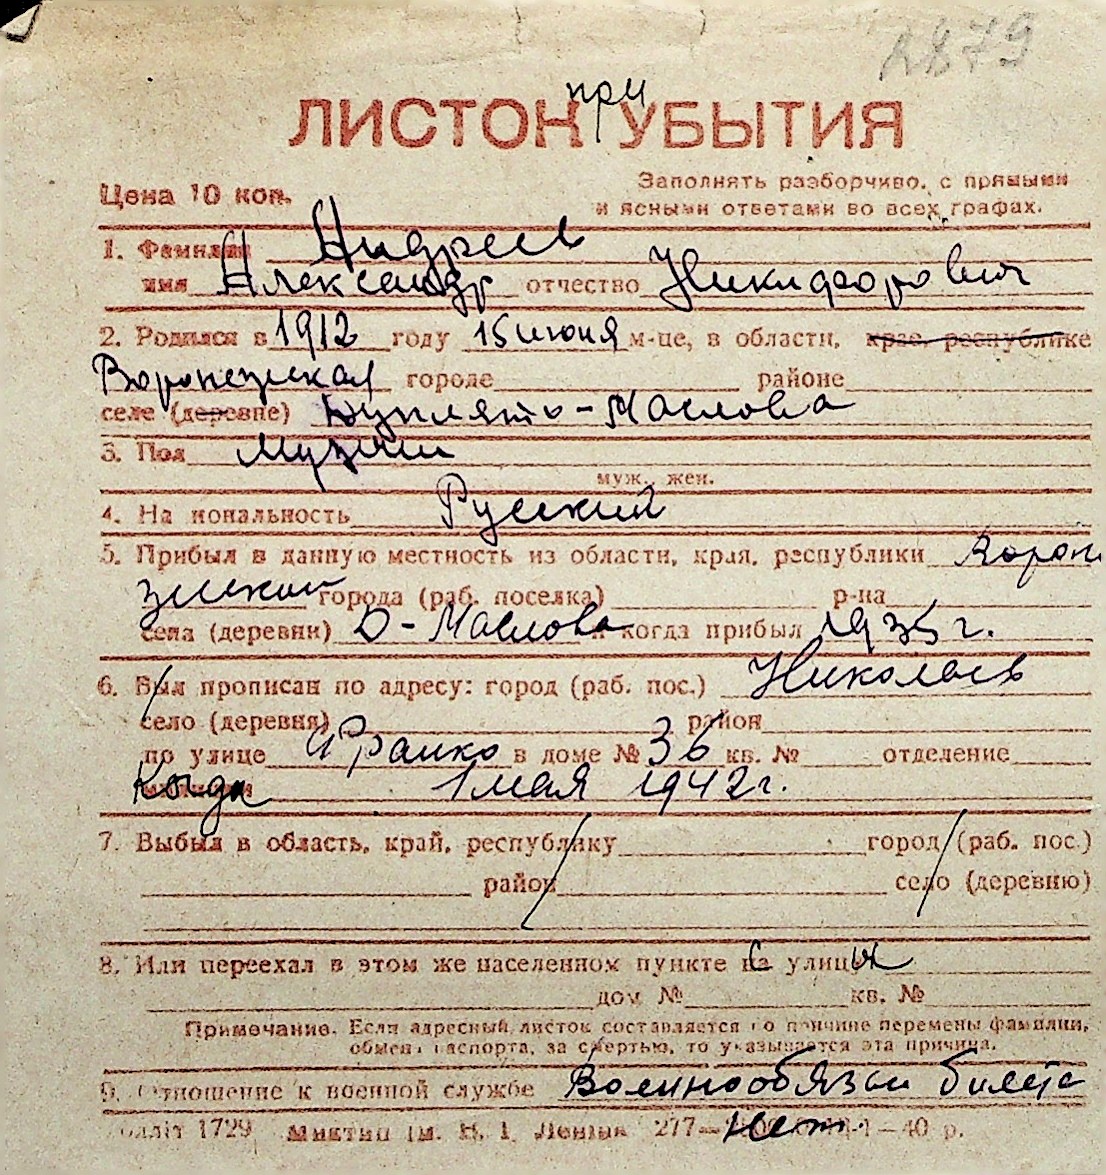 2879
ЛИСТОК при УБЫТИЯ
Цена 10 коп.
Заполнять разборчиво, с прямыми
и ясными ответами во всех графах.
1. Фамилия Андреев
имя Александр отчество Никифорович
2. Родился в 1912 году 15 июня м-це, в области, крае, республике
Воронежская городе районе
селе (деревне) Дуплято-Маслова
3. Пол Мужчин
муж., жен.
4. Национальность Русский
5. Прибыл в данную местность из области, края, республики Ворон
жский города (раб. поселка) р-на
села (деревни) Д-Маслова и когда прибыл 1935 г.
6. Был прописан по адресу: город (раб. пос.) Николаев
село (деревня) район
по улице Франко в доме № 36 кв. № отделение
Когда 1 мая 1942 г.
7. Выбыл в область, край, республику город (раб. пос.)
район село (деревню)
8. Или переехал в этом же населенном пункте с улицы
дом № кв. №
Примечание. Если адресный листок составляется по причине перемены фамилии,
обмена паспорта, за смертью, то указывается эта причина.
9. Отношение к военной службе Военнообязан билета
нет.
1729 40 р.